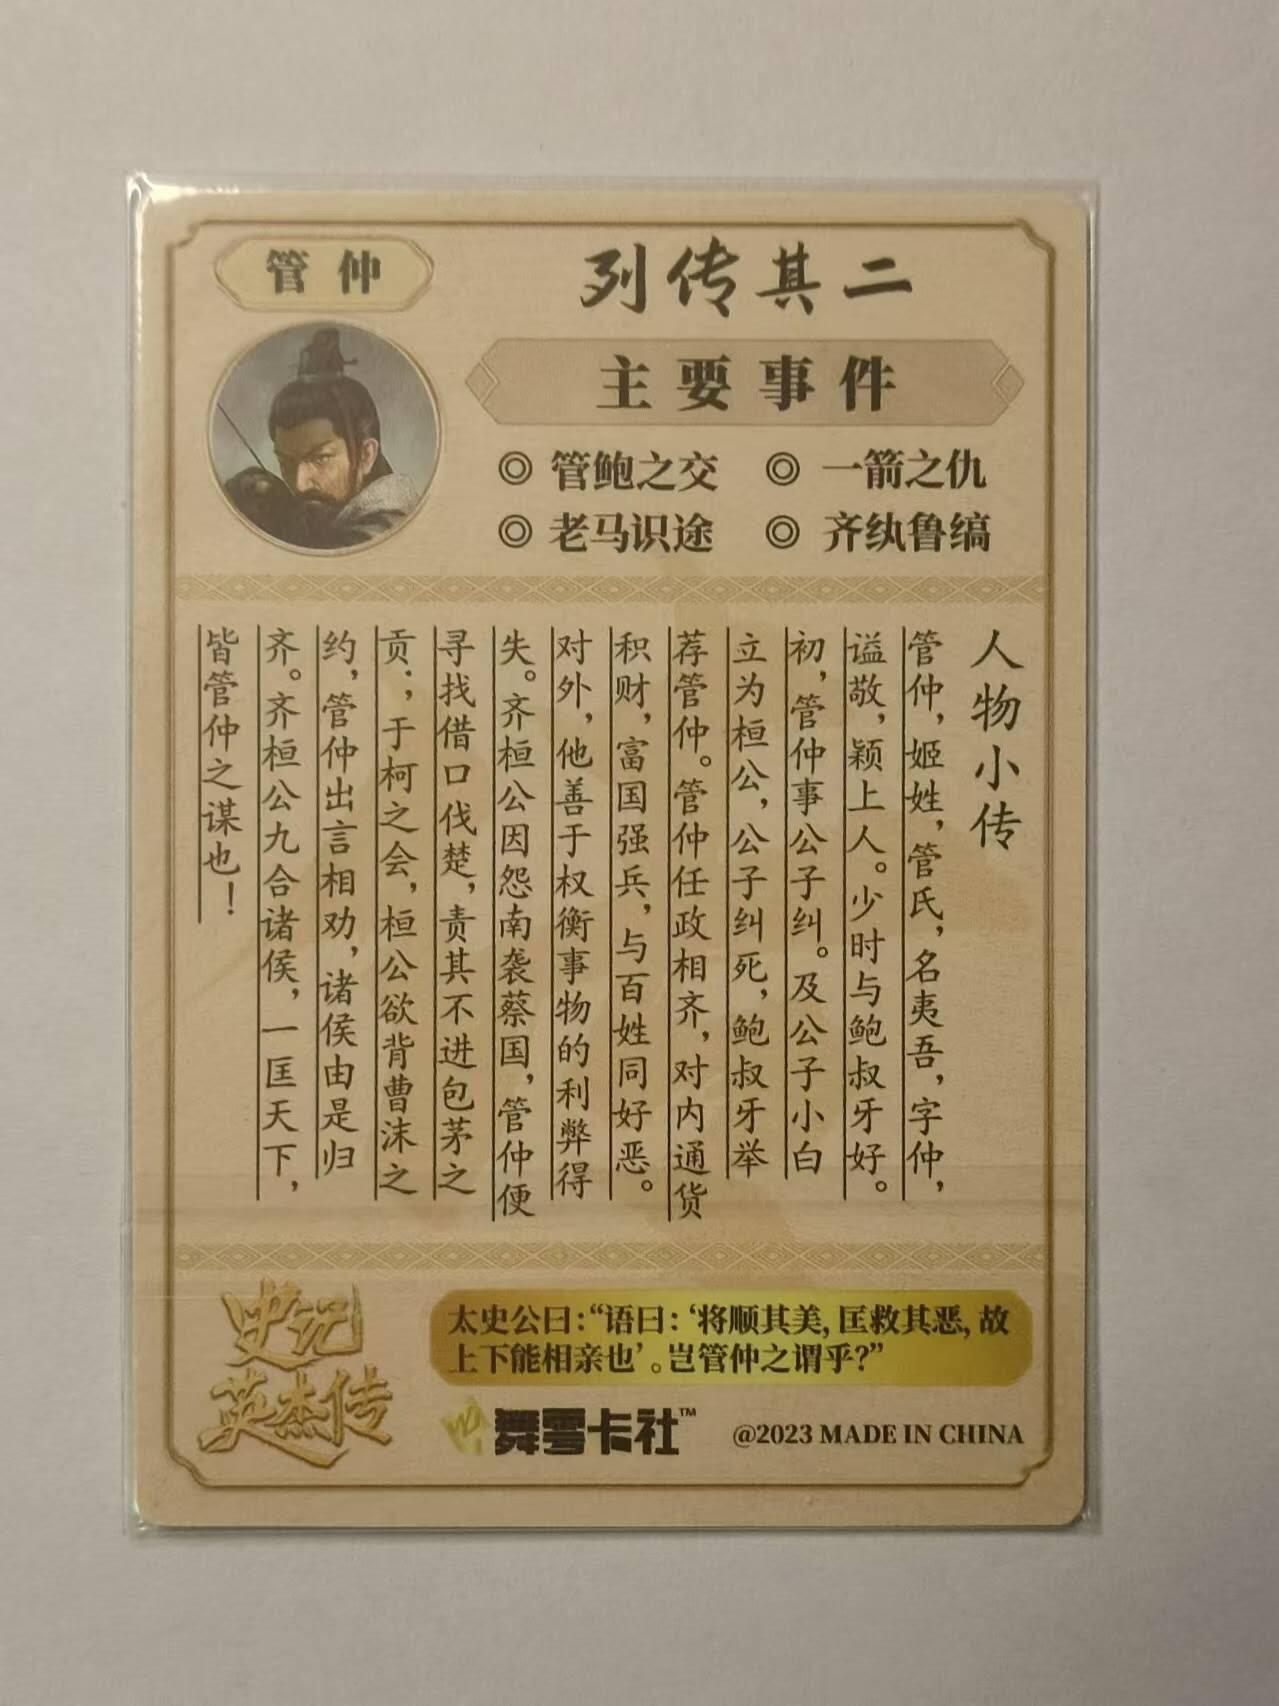 管仲
列传其二
主要事件
◎ 管鲍之交 ◎ 一箭之仇
◎ 老马识途 ◎ 齐纨鲁缟
人物小传
管仲，姬姓，管氏，名夷吾，字仲，
谥敬，颍上人。少时与鲍叔牙好。
初，管仲事公子纠。及公子小白
立为桓公，公子纠死，鲍叔牙举
荐管仲。管仲任政相齐，对内通货
积财，富国强兵，与百姓同好恶。
对外，他善于权衡事物的利弊得
失。齐桓公因怨南袭蔡国，管仲便
寻找借口伐楚，责其不进包茅之
贡；于柯之会，桓公欲背曹沫之
约，管仲出言相劝，诸侯由是归
齐。齐桓公九合诸侯，一匡天下，
皆管仲之谋也！
史记
英杰传
太史公曰：“语曰：‘将顺其美，匡救其恶，故
上下能相亲也’。岂管仲之谓乎？”
舞雩卡社™
@2023 MADE IN CHINA